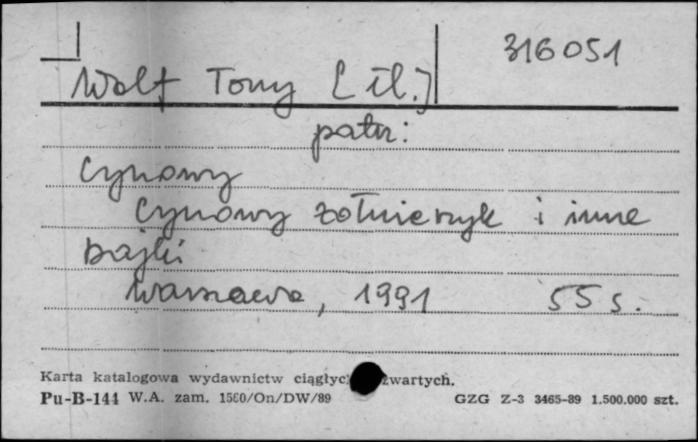 316051
Wolf Tony [il.]
patrz:
Cynowy
Cynowy żołnierzyk i inne
bajki
Warszawa, 1991 55 s.
Karta katalogowa wydawnictw ciągłyc zwartych.
Pu-B-144 W.A. zam. 1560/On/DW/89 GZG Z-3 3465-89 1.500.000 szt.